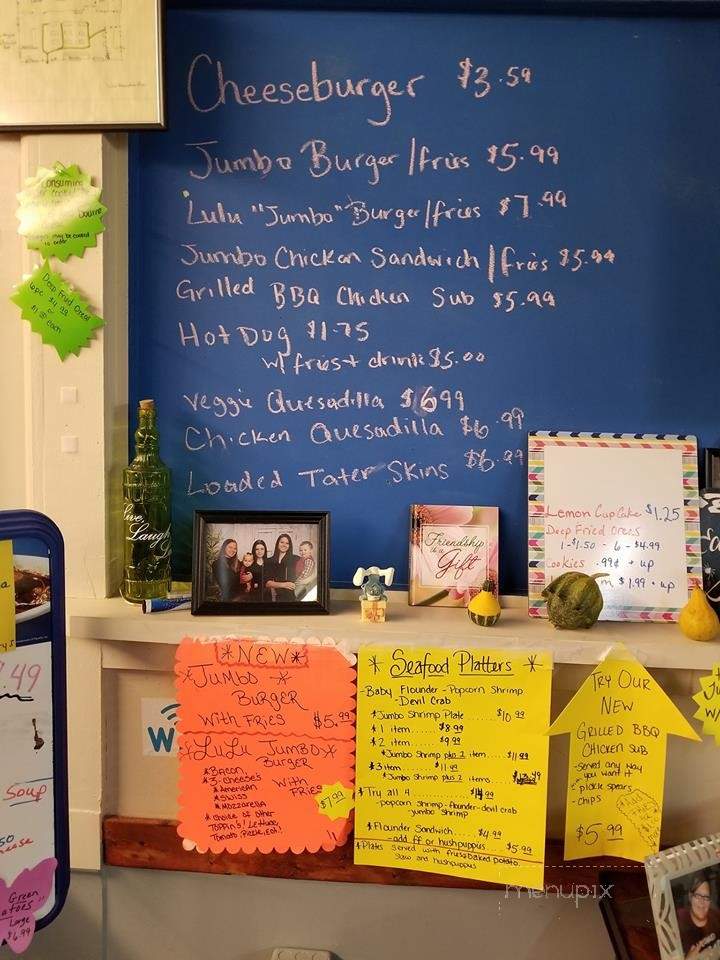 Cheeseburger $3.59
Jumbo Burger/fries $5.99
Lulu "Jumbo" Burger/fries $7.99
Jumbo Chicken Sandwich/fries $5.99
Grilled BBQ Chicken Sub $5.99
Hot Dog $1.75
w/ fries + drink $5.00
Veggie Quesadilla $6.99
Chicken Quesadilla $6.99
Loaded Tater Skins $6.99
Consuming
may be cooked
to order
Deep Fried Oreos
6pc $4.99
or
$1.50 each
Live,
Laugh
Friendship
is a
Gift
Lemon CupCake $1.25
Deep Fried Oreos
1-$1.50 - 6 - $4.99
Cookies .99¢ + up
$1.99 + up
*NEW*
*JUMBO*
BURGER
WITH FRIES $5.99
*LULU JUMBO*
BURGER
WITH
FRIES
$7.99
*BACON
*3-CHEESE'S
*AMERICAN
*SWISS
*MOZZARELLA
*CHOICE OF OTHER
TOPPIN'S! Lettuce,
Tomato, Pickle, Ect!
* Seafood Platters *
-Baby Flounder -Popcorn Shrimp
-Devil Crab
*Jumbo Shrimp Plate ...... $10.99
*1 item ...... $8.99
*2 item ...... $9.99
*Jumbo Shrimp plus 2 item .... $11.99
*3 item ..... $11.99
*Jumbo Shrimp plus 2 items .....
*Try all 4 ............
-popcorn shrimp-flounder-devil crab
-jumbo shrimp
*Flounder Sandwich ..... $4.99
add ff or hushpuppies ...... $5.99
*Plates served with fries o baked potato.
slaw and hushpuppies
TRY OUR
NEW
GRILLED BBQ
CHICKEN SUB
-served any way
you want it
-pickle spears
-chips
$5.99
W
7.49
Soup
Green
Large
$6.99
menupix